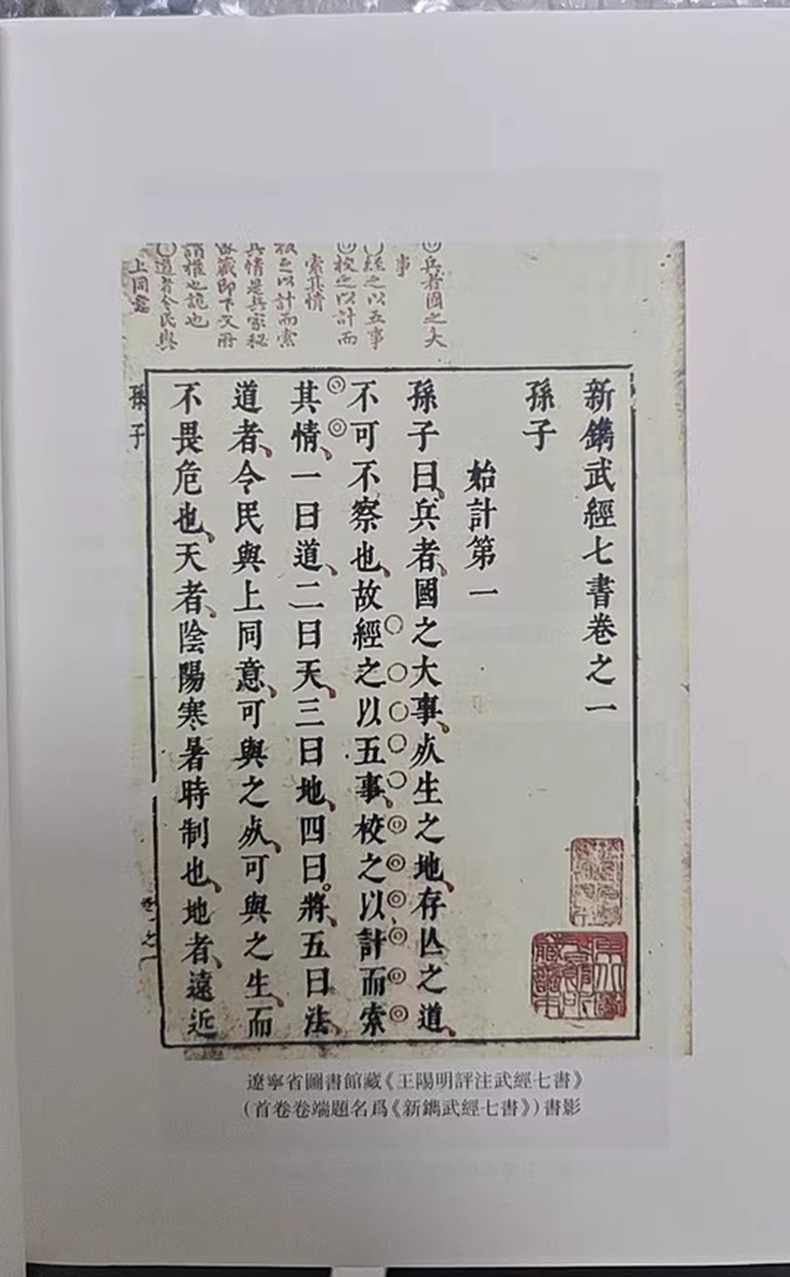 新鐫武經七書卷之一
孫子
始計第一
孫子曰兵者國之大事死生之地存亡之道
不可不察也故經之以五事校之以計而索
其情一曰道二曰天三曰地四曰將五曰法
道者令民與上同意可與之死可與之生而
不畏危也天者陰陽寒暑時制也地者遠近
孫子
兵者國之大
事
經之以五事
校之以計而
索其情
校之以計而索
其情是兵家秘
藏即下文所
謂權也詭也
道者令民與
上同意
遼寧省圖書館藏《王陽明評注武經七書》
（首卷卷端題名爲《新鐫武經七書》）書影